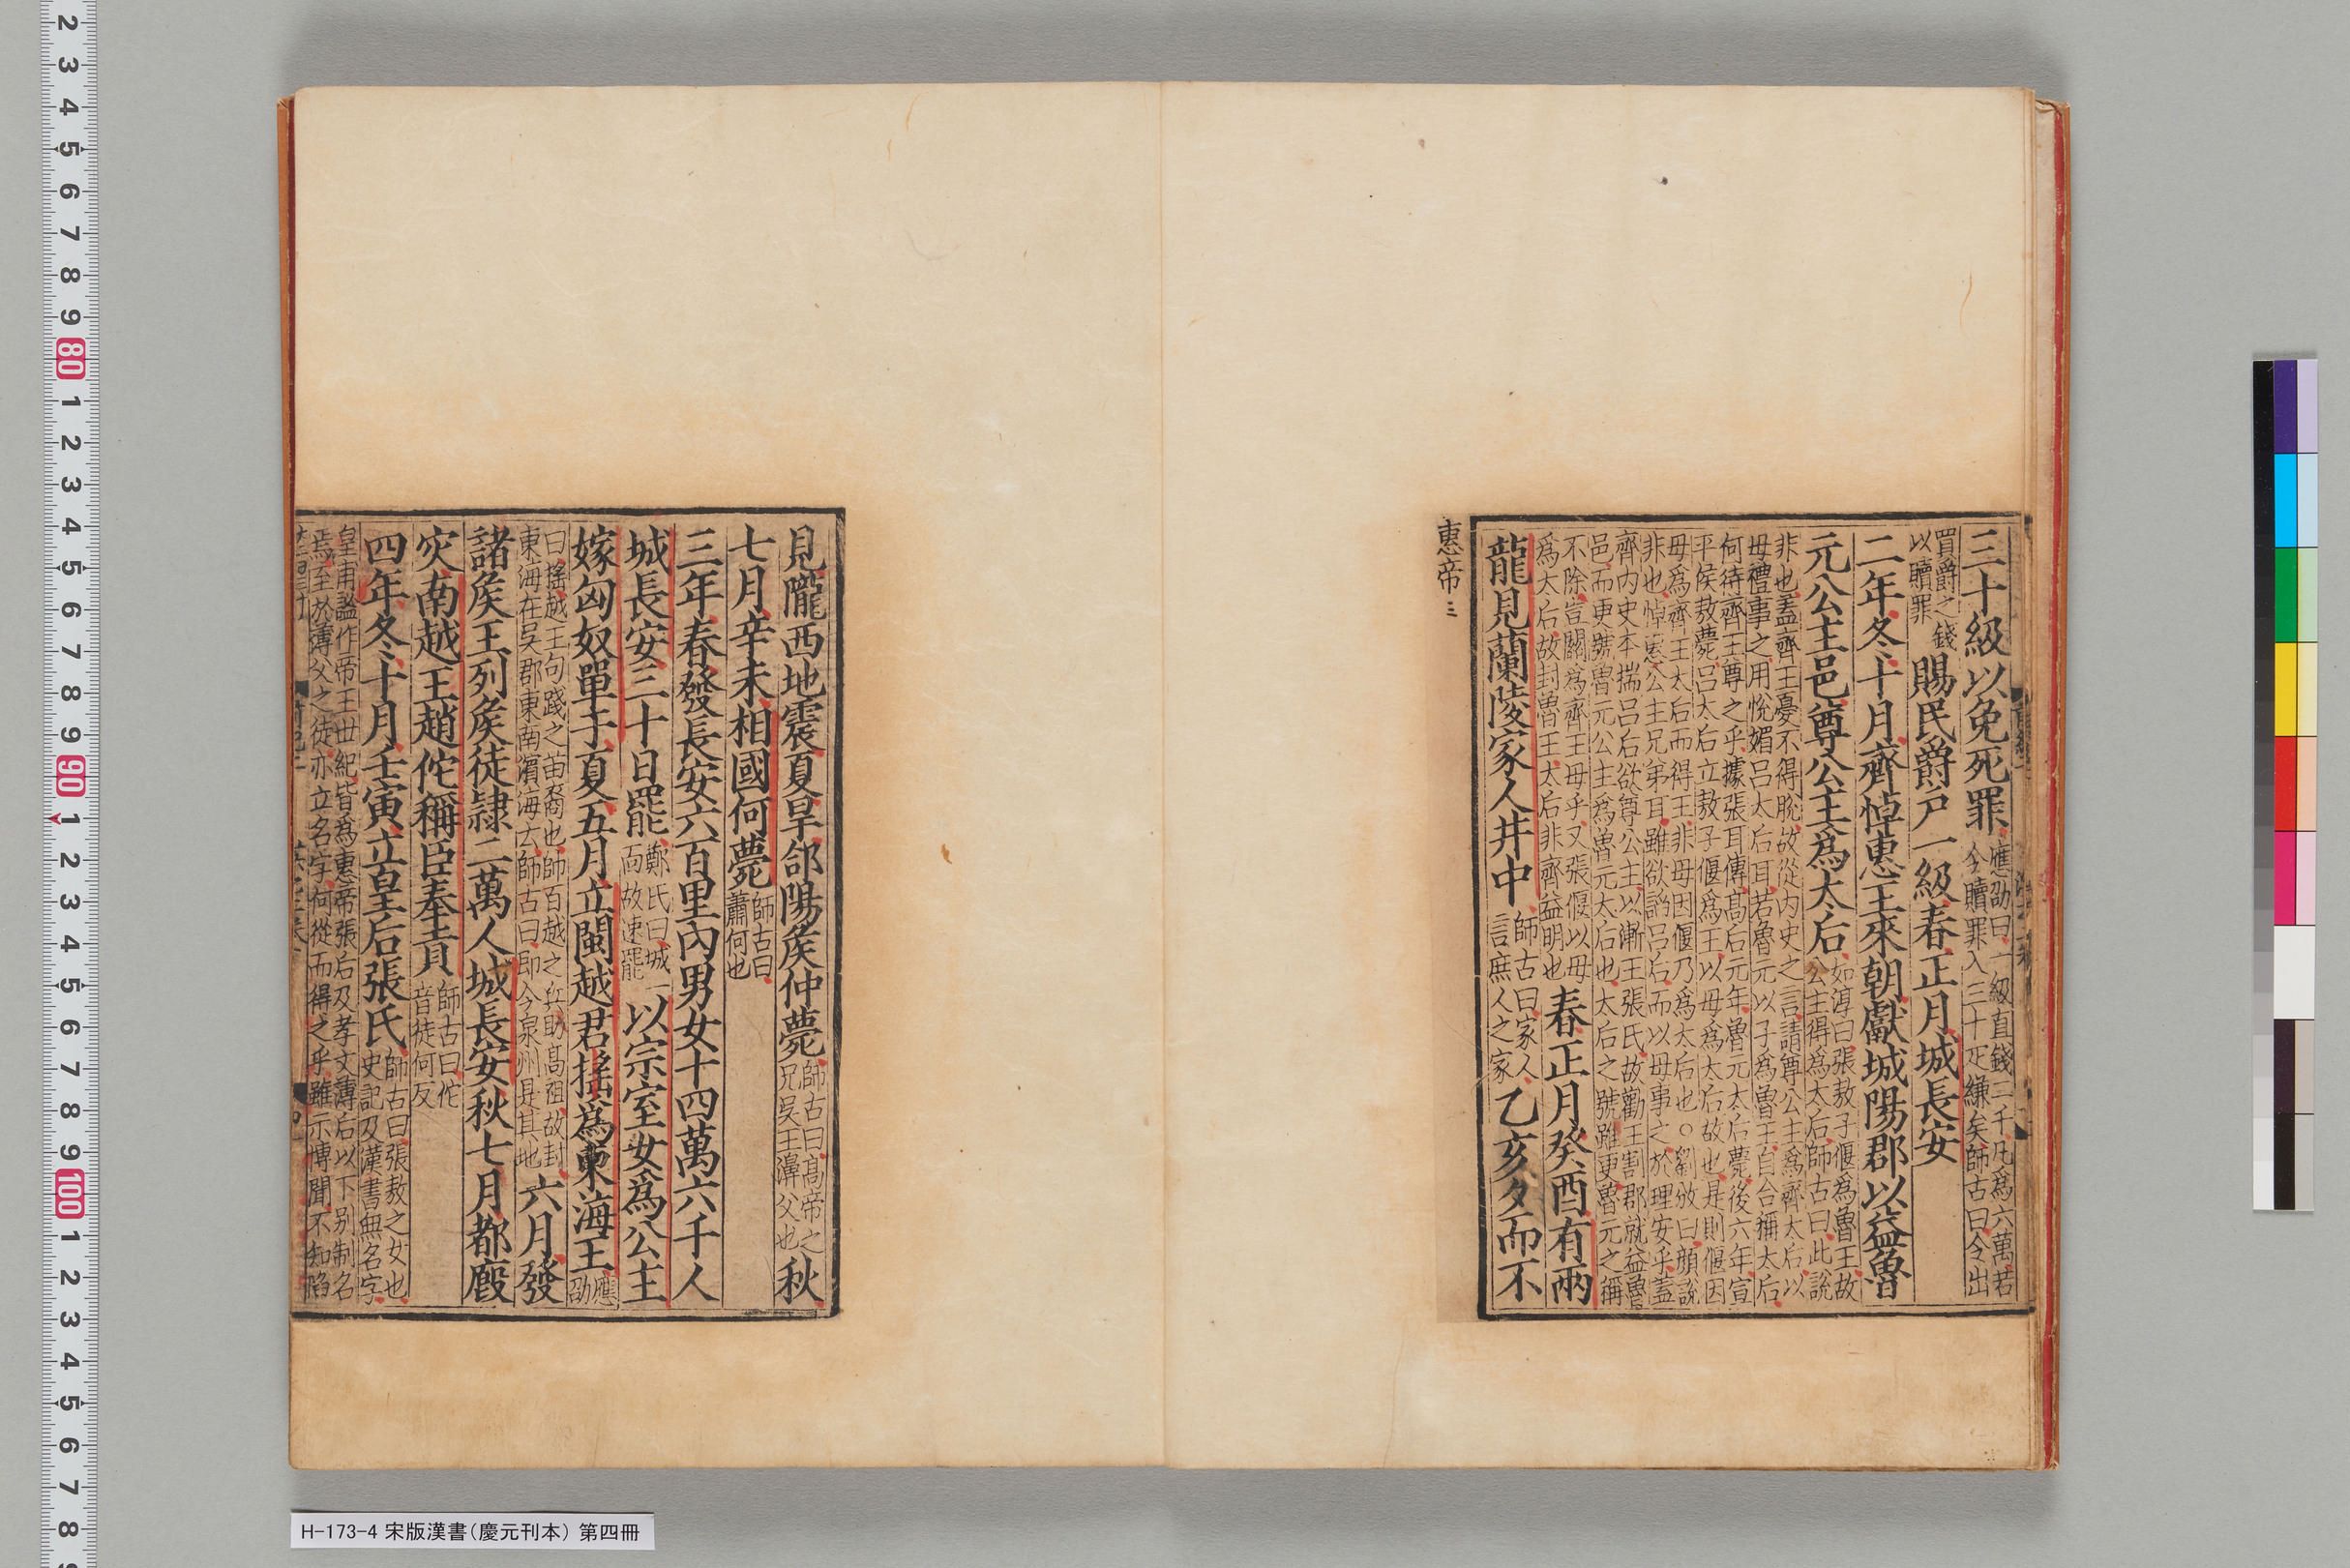 三十級以免死罪應劭曰一級直錢二千凡爲六萬若
今贖罪入三十疋縑矣師古曰令出
買爵之錢
以贖罪賜民爵戶一級春正月城長安
二年冬十月齊悼惠王來朝獻城陽郡以益魯
元公主邑尊公主爲太后如淳曰張敖子偃爲魯王故
公主得爲太后師古曰此說
非也蓋齊王憂不得脫故從內史之言請尊公主爲齊太后以
母禮事之用悅媚呂太后耳若魯元以子爲魯王自合稱太后
何待齊王尊之乎據張耳傳高后元年魯元太后薨後六年宣
平侯敖薨呂太后立敖子偃爲王以母爲太后故也是則偃因
母爲齊王太后而得王非母因偃乃爲太后也○劉攽曰顏說
非也悼惠公主兄弟耳雖欲諂呂后而以母事之於理安乎蓋
齊內史本揣呂后欲尊公主以漸王張氏故勸王割郡就益魯
邑而更號魯元公主爲魯元太后也太后之號雖更魯元之稱
不除豈關爲齊王母乎又張偃以母
爲太后故封魯王太后非齊益明也春正月癸酉有兩
龍見蘭陵家人井中師古曰家人
言庶人之家乙亥夕而不
惠帝三
見隴西地震夏旱郃陽矦仲薨師古曰高帝之
兄吳王濞父也秋
七月辛未相國何薨師古曰
蕭何也
三年春發長安六百里內男女十四萬六千人
城長安三十日罷鄭氏曰城一
面故速罷以宗室女爲公主
嫁匈奴單于夏五月立閩越君搖爲東海王應
劭
曰搖越王句踐之苗裔也師百越之兵助高祖故封
東海在吳郡東南濱海云師古曰即今泉州是其地六月發
諸矦王列矦徒隸二萬人城長安秋七月都廄
灾南越王趙佗稱臣奉貢師古曰佗
音徒何反
四年冬十月壬寅立皇后張氏師古曰張敖之女也
史記及漢書無名字
皇甫謐作帝王世紀皆爲惠帝張后及孝文薄后以下別制名
焉至於薄父之徒亦立名字何從而得之乎雖示博聞不知陷
H-173-4 宋版漢書(慶元刊本) 第四冊